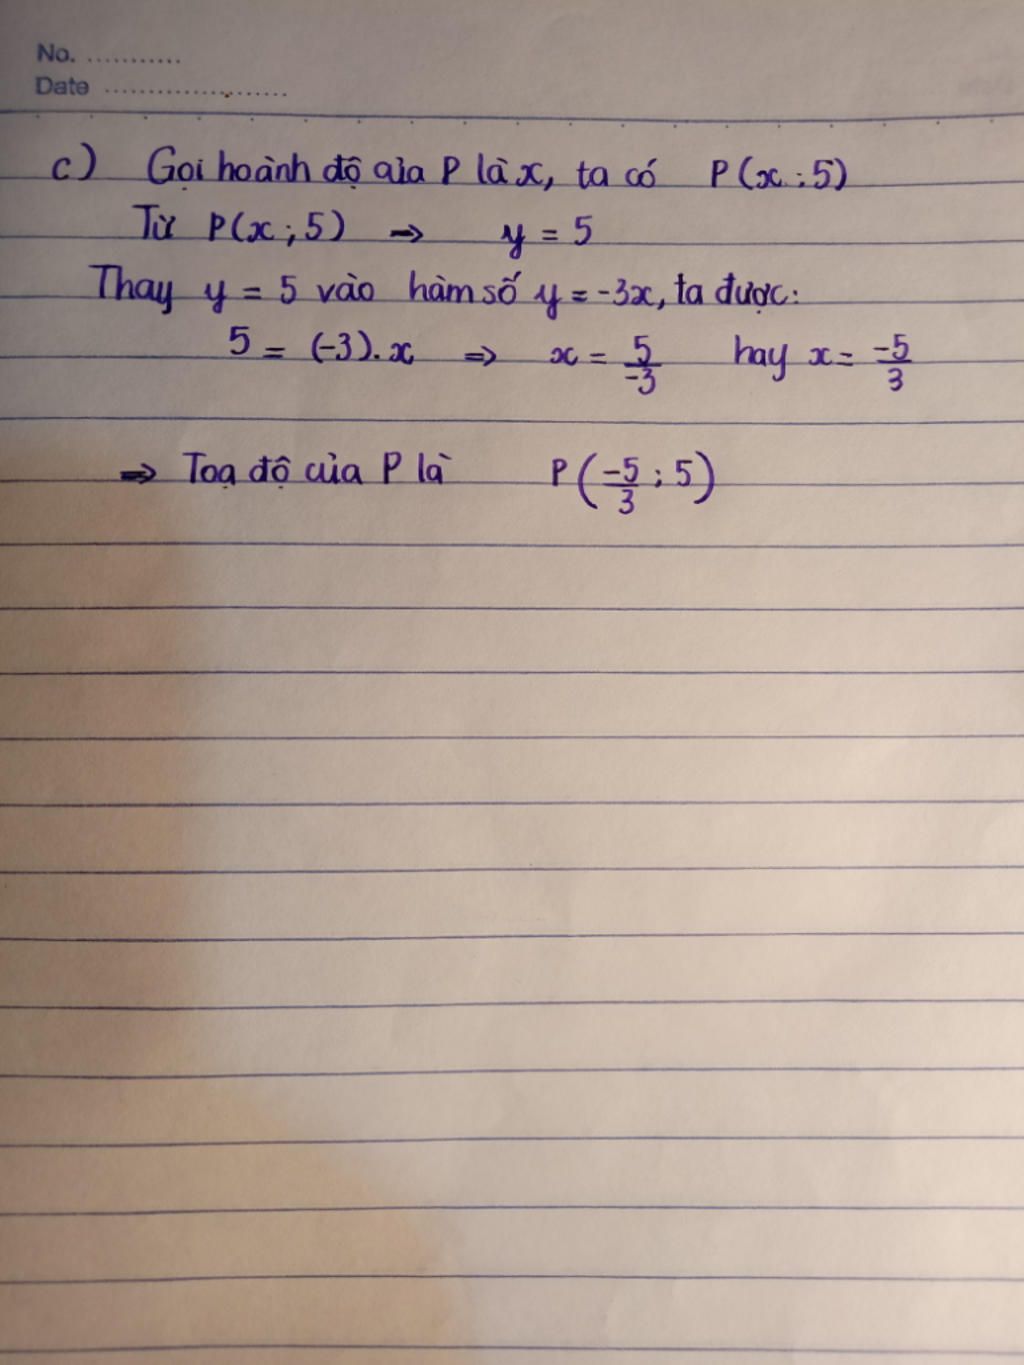 No. ...........
Date .....................
c) Gọi hoành độ của P là x, ta có P(x ; 5)
Từ P(x ; 5) → y = 5
Thay y = 5 vào hàm số y = -3x, ta được:
5 = (-3). x ⇒ x = 5/-3 hay x = -5/3
⇒ Toạ độ của P là P(-5/3 ; 5)